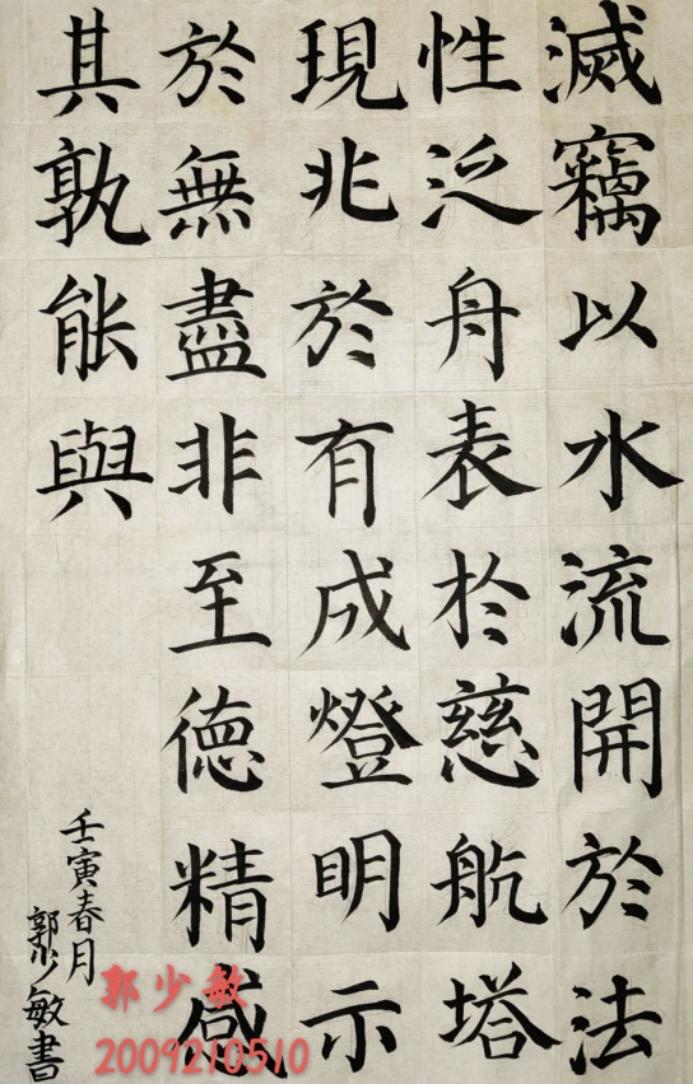 滅竊以水流開於法
性泛舟表於慈航塔
現兆於有成燈明示
於無盡非至德精感
其孰能與
壬寅春月
郭少敏書
郭少敏
2009210510